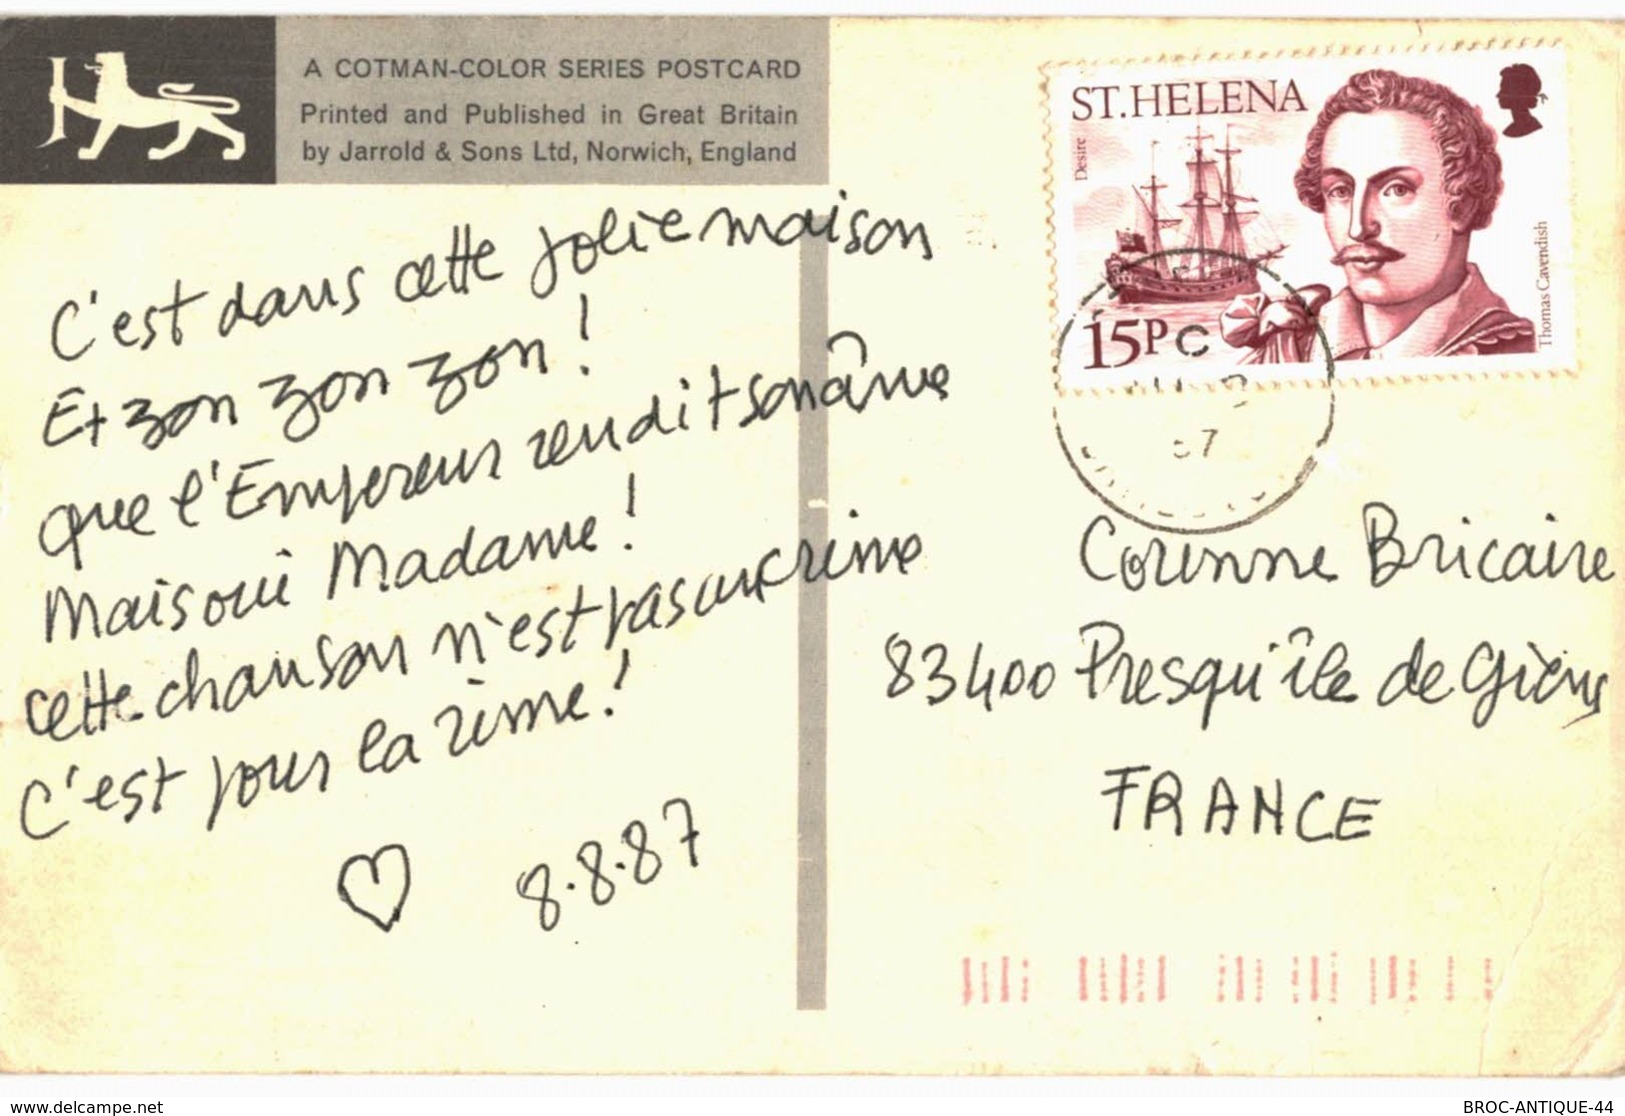 A COTMAN-COLOR SERIES POSTCARD
Printed and Published in Great Britain
by Jarrold & Sons Ltd, Norwich, England
C'est dans cette jolie maison
Et zon zon zon !
que l'Empereur rendit son âme
Mais oui Madame !
cette chanson n'est pas un crime
C'est pour la rime !
♡ 8.8.87
ST. HELENA
Desire
Thomas Cavendish
15P
C
87
Corinne Bricaire
83400 Presqu'île de Giens
FRANCE
www.delcampe.net
BROC-ANTIQUE-44